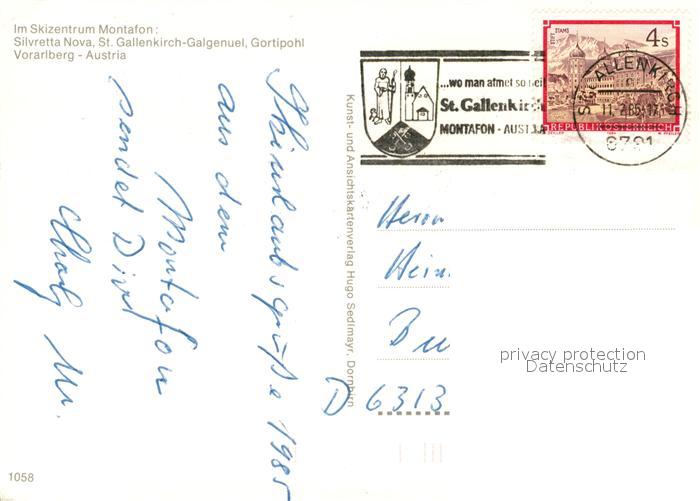 Im Skizentrum Montafon:
Silvretta Nova, St. Gallenkirch-Galgenuel, Gortipohl
Vorarlberg - Austria
Skiurlaubsgrüße 1985
aus dem
Montafon
sendet Dir
Kunst- und Ansichtskartenverlag Hugo Sedlmayr, Dornbirn
...wo man atmet so
St. Gallenkirch
MONTAFON - AUSTRIA
STIFT STAMS
4s
REPUBLIK ÖSTERREICH
ST. GALLENKIRCH
11.2.85-17
6791
Herrn
Hein.
Bu
D 6313
privacy protection
Datenschutz
1058